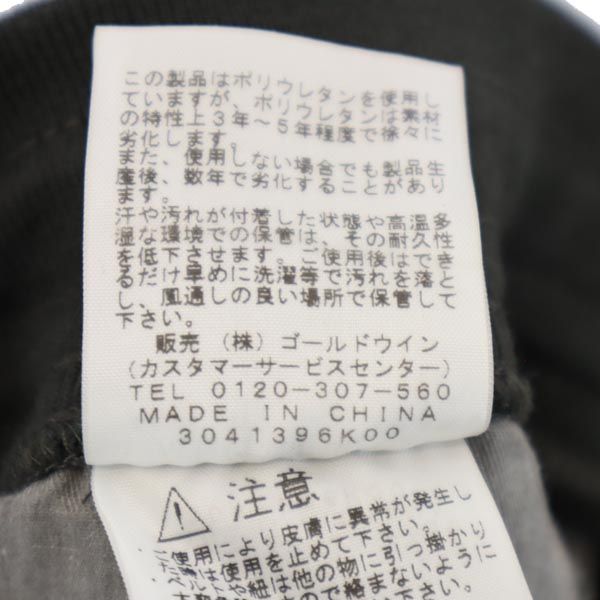 この製品はポリウレタンを使用し
ていますが、ポリウレタンは素材
の特性上3年〜5年程度で徐々に
劣化します。
また、使用しない場合でも製品生
産後、数年で劣化することがあり
ます。
汗や汚れが付着した状態や高温多
湿な環境での保管は、その耐久性
を低下させます。ご使用後はでき
るだけ早めに洗濯等で汚れを落と
し、風通しの良い場所で保管して
下さい。
販売 (株) ゴールドウイン
(カスタマーサービスセンター)
TEL 0120-307-560
MADE IN CHINA
3041396K00
注意
使用により皮膚に異常が発生し
は使用を止めて下さい。
紐は他の物に引っ掛かり
で絡まないように